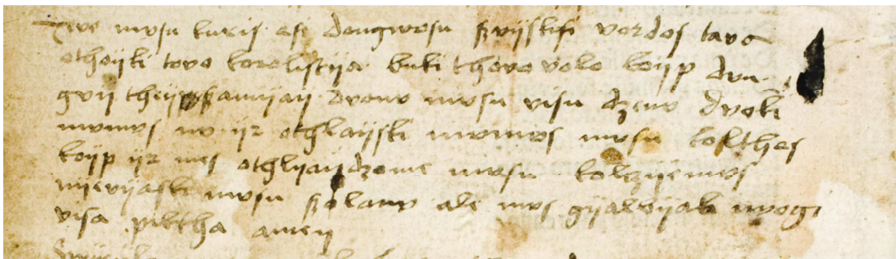 Tewe mvsu kuris esi dangwosu szvyskisi vardas tavo
athayki tavo karalistya buki thavo vala kayp dan
gvy theyp zamyay dvonv mvsu visu dzenv dvoki
mvmvs nv yr athlayski mvmvs mvsu kalthes
kayp yr mes athlyaydzame mvsu kalczyemvs
nyevyaski mvsu szalanv ale mvs gyalbyak nvogi
visa piktha ameny